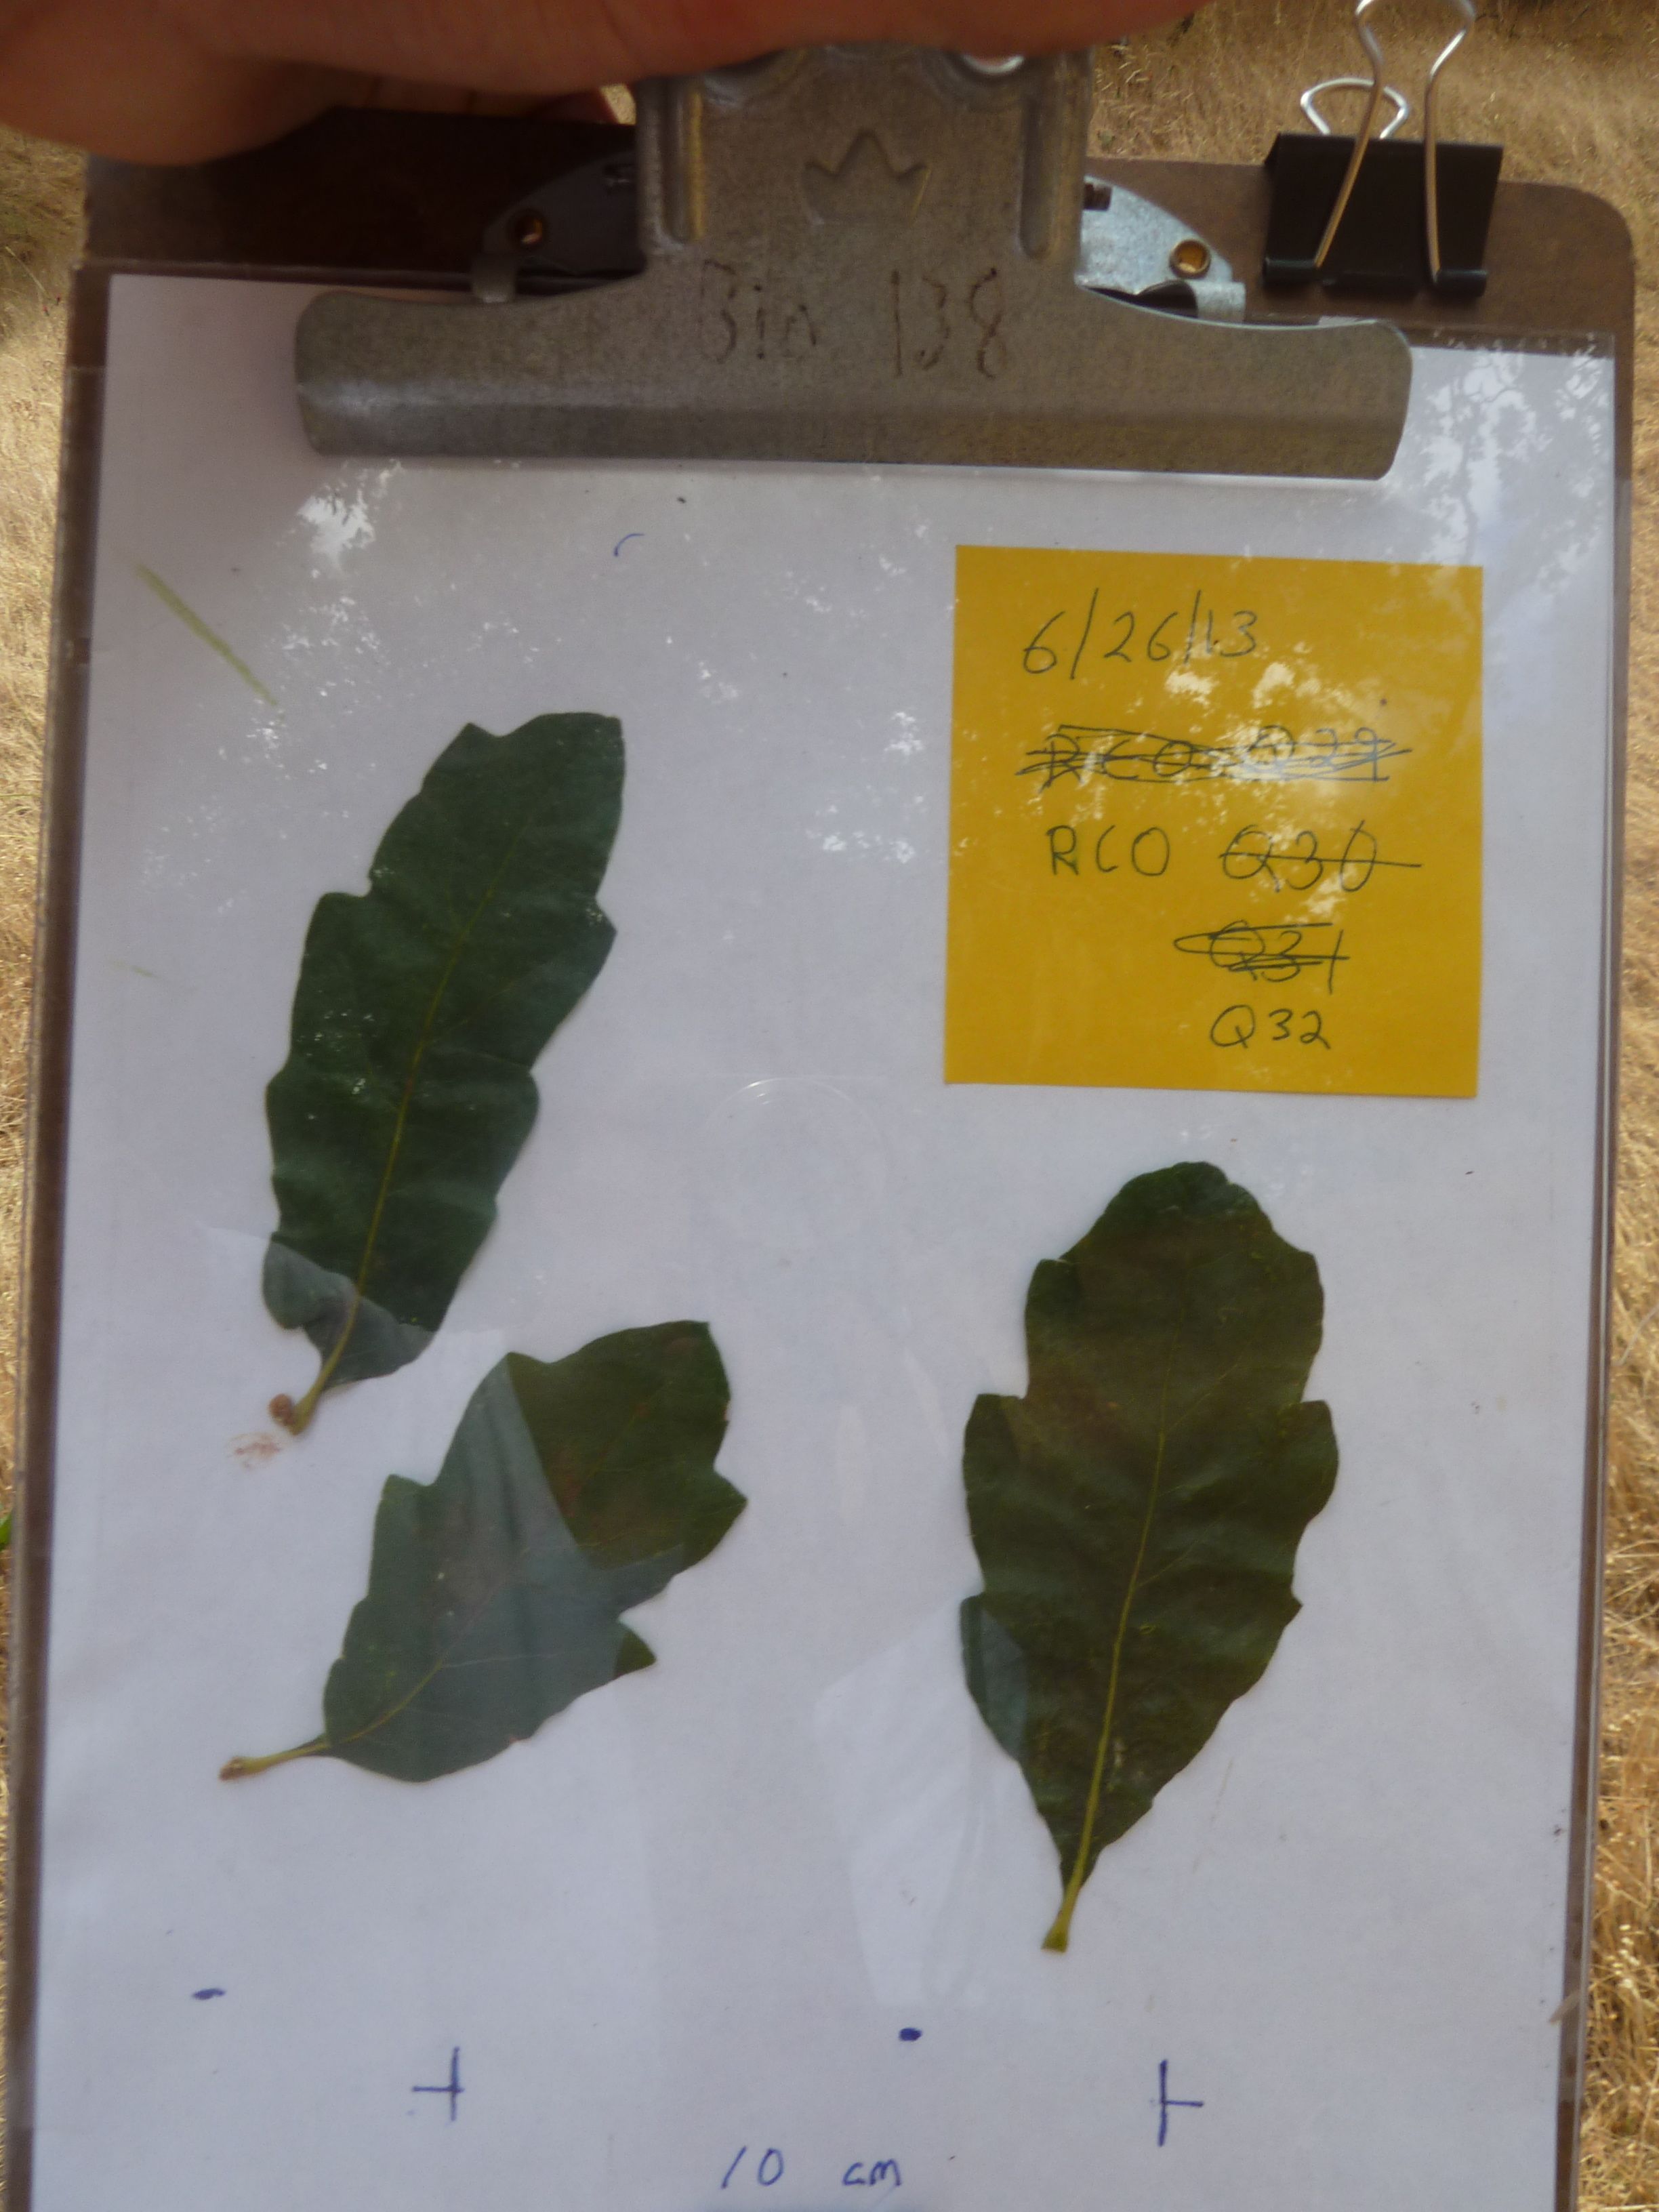 Bio 138
6/26/13
RCO Q29
RCO Q30
Q31
Q32
10 cm